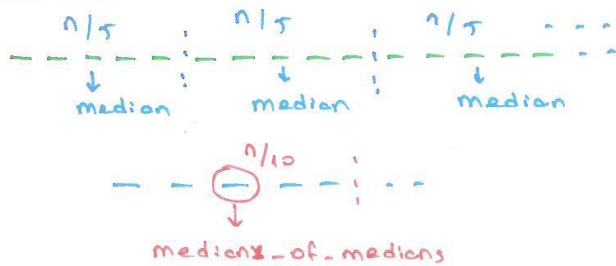 n/5 n/5 n/5
median median median
n/10
median_of_medians